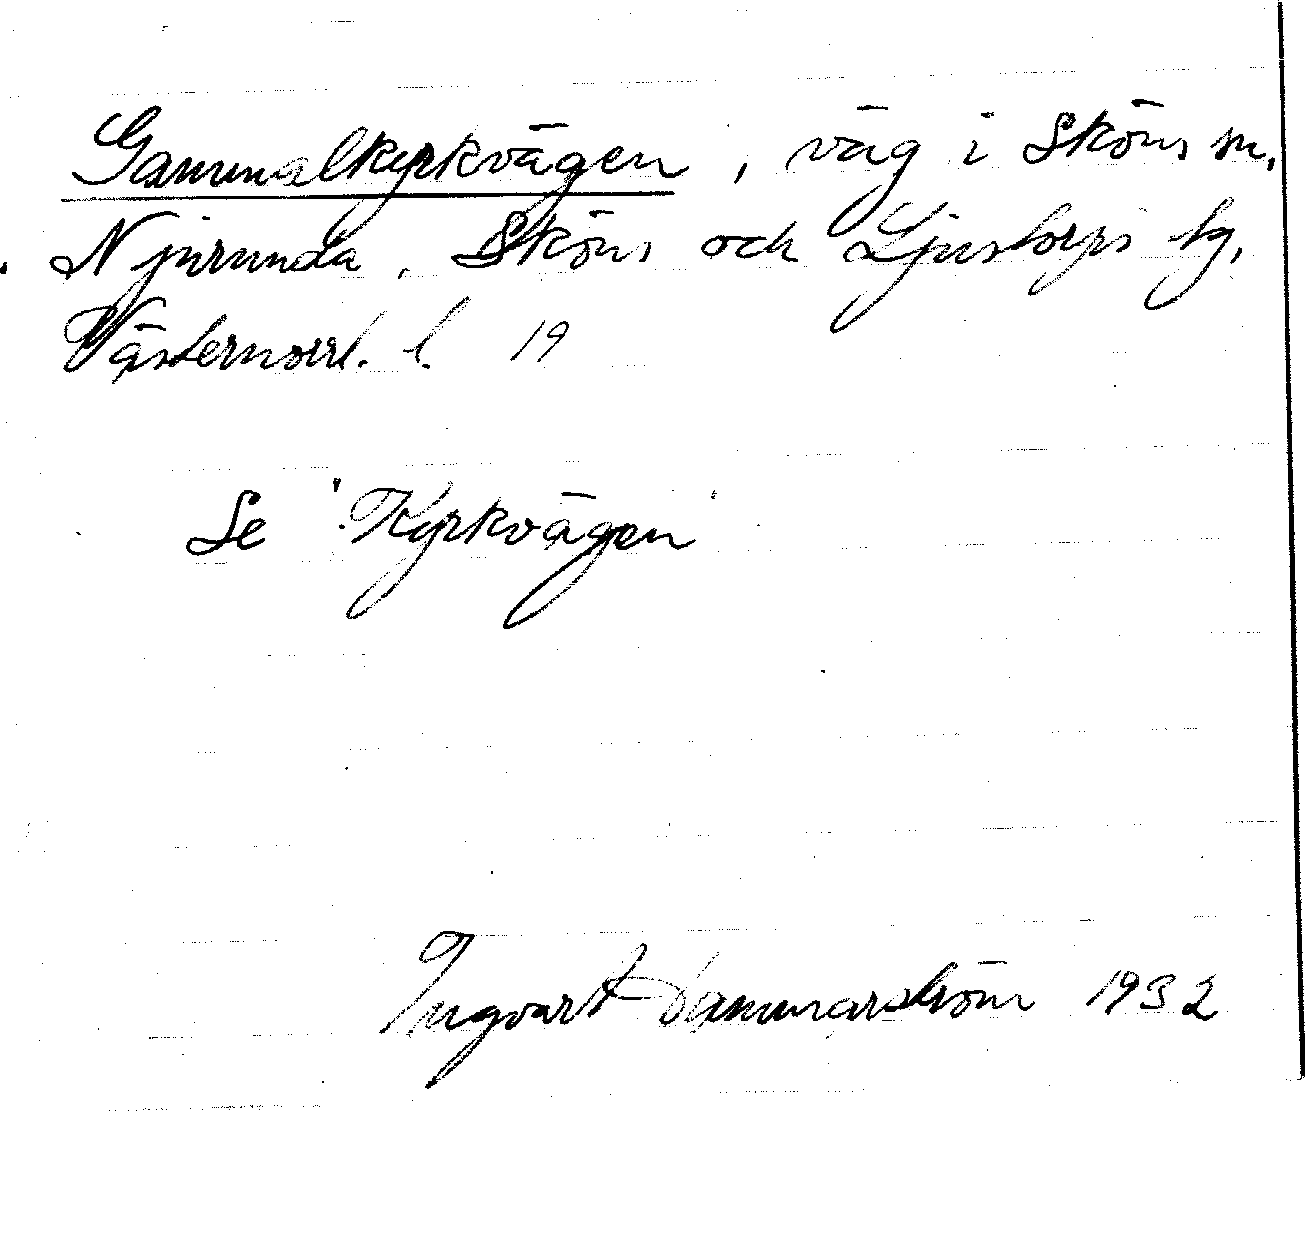 Gammalkyrkvägen, väg i Sköns sn,
Njurunda, Sköns och Ljustorps tg,
Västernorrl. l. 19
Se 'Kyrkvägen'
Ingvart Hammarström 1932